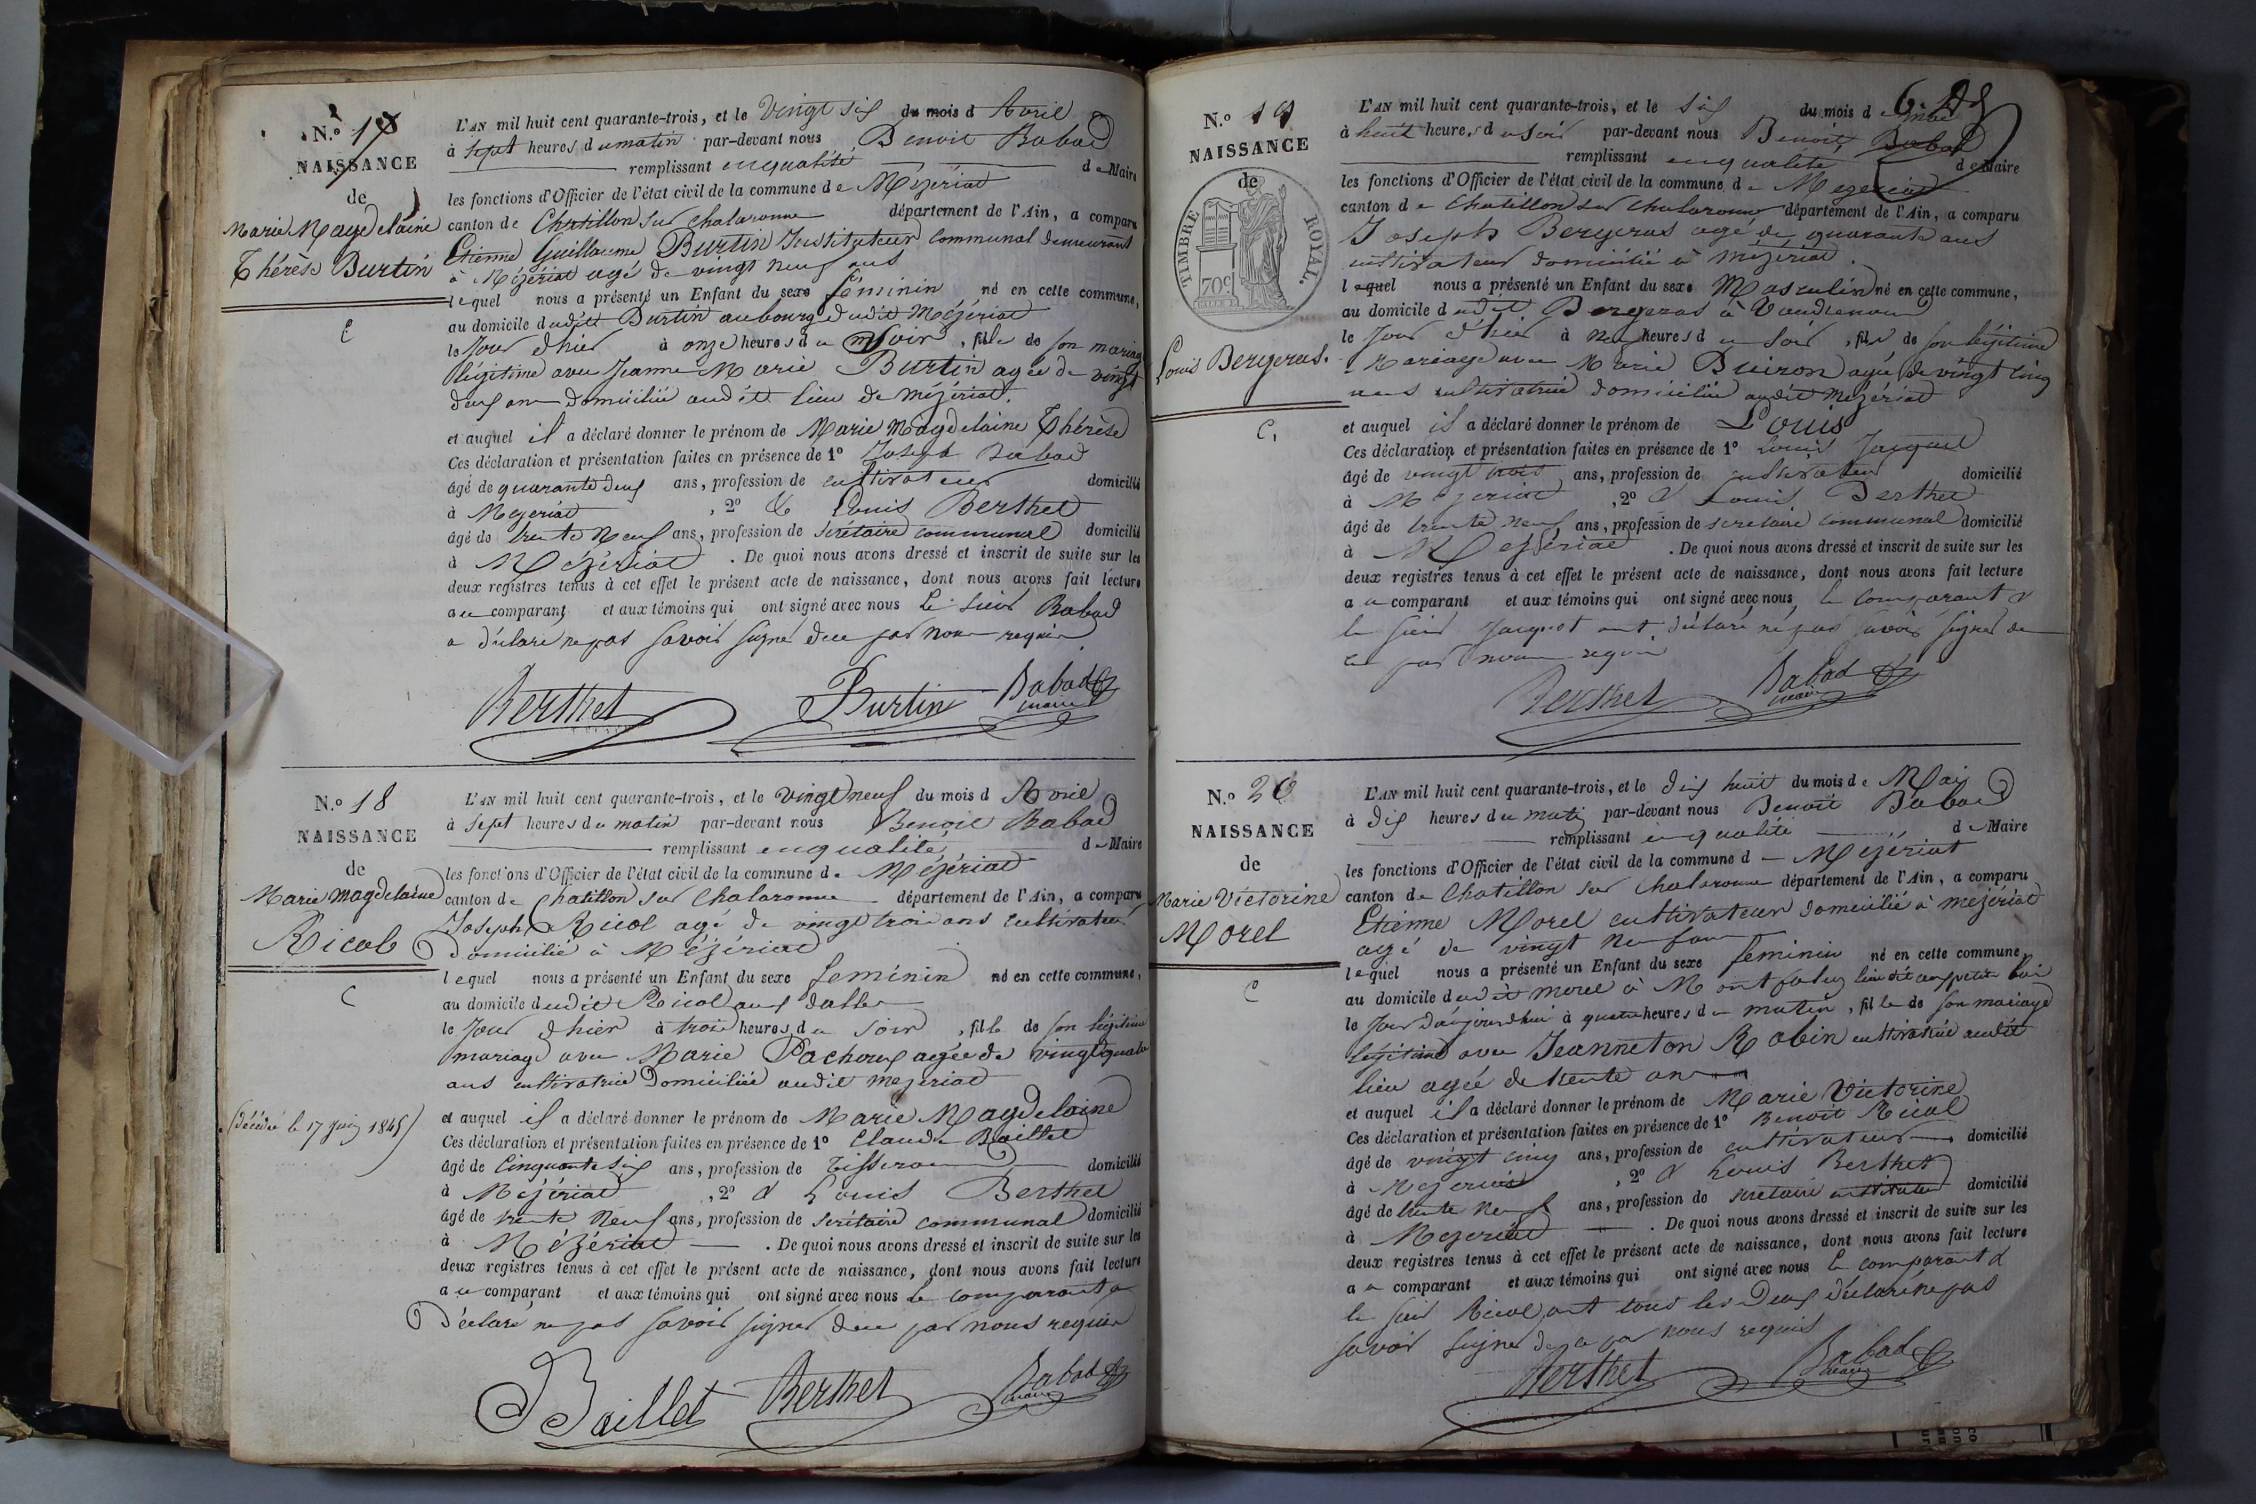 N.º 17
NAISSANCE
de
Marie Magdelaine
Thérèse Burtin
L'AN mil huit cent quarante-trois, et le vingt six du mois d Avril
à sept heures du matin par-devant nous Benoit Babad
remplissant en qualité de Maire
les fonctions d'Officier de l'état civil de la commune de Mézériat
canton de Chatillon sur Chalaronne département de l'Ain, a comparu
Etienne Guillaume Burtin Instituteur communal demeurant
à Mézériat agé de vingt neuf ans
lequel nous a présenté un Enfant du sexe féminin né en cette commune,
au domicile dudit Burtin au bourg dudit Mézériat
le jour d'hier à onze heures du soir, fille de son mariage
légitime avec Jeanne Marie Burtin agée de vingt
deux ans domiciliée audit lieu de Mézériat.
et auquel il a déclaré donner le prénom de Marie Magdelaine Thérèse
Ces déclaration et présentation faites en présence de 1º Joseph Babad
âgé de quarante deux ans, profession de cultivateur domicilié
à Mezériat, 2º & Louis Berthet
âgé de trente neuf ans, profession de secrétaire communal domicilié
à Mézériat. De quoi nous avons dressé et inscrit de suite sur les
deux registres tenus à cet effet le présent acte de naissance, dont nous avons fait lecture
au comparant et aux témoins qui ont signé avec nous le sieur Babad
a déclaré ne pas savoir signer de ce par nous requis
Berthet Burtin Babad
maire
N.º 18
NAISSANCE
de
Marie Magdelaine
Ricol
C
(Décédée le 17 juin 1845)
L'AN mil huit cent quarante-trois, et le vingt neuf du mois d Avril
à sept heures du matin par-devant nous Benoit Babad
remplissant en qualité de Maire
les fonctions d'Officier de l'état civil de la commune de Mézériat
canton de Chatillon sur Chalaronne département de l'Ain, a comparu
Joseph Ricol agé de vingt trois ans cultivateur
domicilié à Mézériat
lequel nous a présenté un Enfant du sexe feminin né en cette commune,
au domicile dudit Ricol aux
le jour d'hier à trois heures du soir, fille de son légitime
mariage avec Marie Pachoux agée de vingt quatre
ans cultivatrice domiciliée audit mezeriat
et auquel il a déclaré donner le prénom de Marie Magdelaine
Ces déclaration et présentation faites en présence de 1º Claude Baillet
âgé de Cinquante six ans, profession de Tisserand domicilié
à Mézériat, 2º & Louis Berthet
âgé de trente neuf ans, profession de secrétaire communal domicilié
à Mézériat. De quoi nous avons dressé et inscrit de suite sur les
deux registres tenus à cet effet le présent acte de naissance, dont nous avons fait lecture
au comparant et aux témoins qui ont signé avec nous le comparant a
Déclaré ne pas savoir signer de ce par nous requis
Baillet Berthet Babad
maire
N.º 19
NAISSANCE
de
TIMBRE ROYAL.
70c
Louis Bergeras.
C
L'AN mil huit cent quarante-trois, et le six du mois de mai
à huit heures du soir par-devant nous Benoit Babad
remplissant en qualité de Maire
les fonctions d'Officier de l'état civil de la commune de Mezeriat
canton de Chatillon sur Chalaronne département de l'Ain, a comparu
Joseph Bergeras agé de quarante ans
cultivateur domicilié à Mézériat.
lequel nous a présenté un Enfant du sexe Masculin né en cette commune,
au domicile dudit Bergeras à
le jour d'hier à neuf heures du soir, fils de son légitime
Mariage avec Marie Buiron agée de vingt cinq
ans cultivatrice domiciliée audit Mézériat
et auquel il a déclaré donner le prénom de Louis
Ces déclaration et présentation faites en présence de 1º Louis Jacquet
âgé de vingt trois ans, profession de cultivateur domicilié
à Mézériat, 2º & Louis Berthet
âgé de trente neuf ans, profession de secretaire communal domicilié
à Mezériat. De quoi nous avons dressé et inscrit de suite sur les
deux registres tenus à cet effet le présent acte de naissance, dont nous avons fait lecture
au comparant et aux témoins qui ont signé avec nous le comparant &
le sieur Jacquet ont déclaré ne pas savoir signer de
ce par nous requis
Berthet Babad
maire
N.º 20
NAISSANCE
de
Marie Victorine
Morel
C
L'AN mil huit cent quarante-trois, et le dix huit du mois de Mai
à dix heures du matin par-devant nous Benoit Babad
remplissant en qualité de Maire
les fonctions d'Officier de l'état civil de la commune d Mézériat
canton de Chatillon sur Chalaronne département de l'Ain, a comparu
Etienne Morel cultivateur domicilié à mezériat
agé de vingt neuf ans
lequel nous a présenté un Enfant du sexe feminin né en cette commune,
au domicile dudit morel à lieu dit au petit
le jour d'aujourdhui à quatre heures du matin, fille de son mariage
légitime avec Jeanneton Robin cultivatrice audit
lieu agée de trente ans
et auquel il a déclaré donner le prénom de Marie Victorine
Ces déclaration et présentation faites en présence de 1º Benoit Ricol
âgé de vingt cinq ans, profession de cultivateur domicilié
à Mezériat, 2º & Louis Berthet
âgé de trente neuf ans, profession de secretaire domicilié
à Mezériat. De quoi nous avons dressé et inscrit de suite sur les
deux registres tenus à cet effet le présent acte de naissance, dont nous avons fait lecture
au comparant et aux témoins qui ont signé avec nous le comparant &
le sieur Ricol ont tous les deux déclaré ne pas
savoir signer de ce par nous requis
Berthet Babad
maire